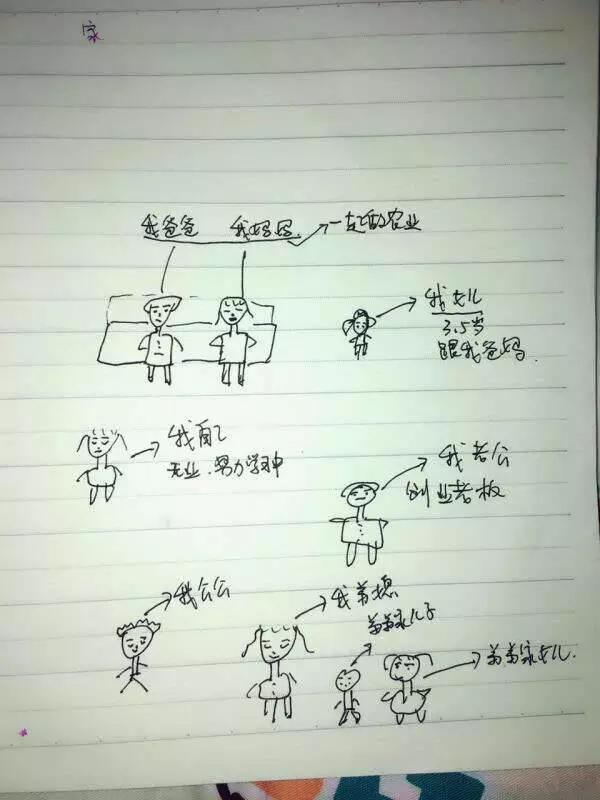 家
我爸爸 我妈妈 一起的农业
我女儿
3.5岁
跟我爸妈
我自己
无业.努力学习中
我老公
创业老板
我公公
我弟媳
弟弟家儿子
弟弟家女儿.